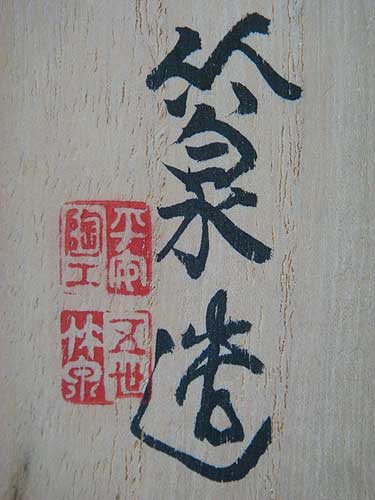 竹泉造
平安陶工
五世竹泉